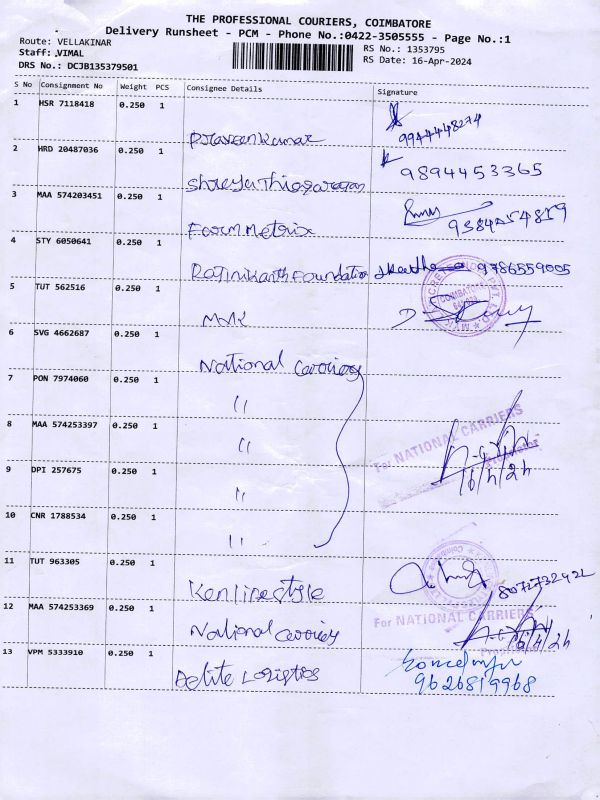 THE PROFESSIONAL COURIERS, COIMBATORE
Delivery Runsheet - PCM - Phone No.:0422-3505555 - Page No.:1
Route: VELLAKINAR
RS No.: 1353795
Staff: VIMAL
RS Date: 16-Apr-2024
DRS No.: DCJB135379501
S No Consignment No Weight PCS Consignee Details Signature
1 HSR 7118418 0.250 1
Praveen Kumar 9944448274
2 HRD 20487036 0.250 1
Shreya Thiagarajan 9894453365
3 MAA 574203451 0.250 1
Farm Metrix 9384454859
4 STY 6050641 0.250 1
Rajinikanth Foundation 9786559005
5 TUT 562516 0.250 1
COIMBATORE
MMK
6 SVG 4662687 0.250 1
National Carriers
7 PON 7974060 0.250 1
"
8 MAA 574253397 0.250 1
For NATIONAL CARRIERS
"
9 DPI 257675 0.250 1
16/4/24
"
10 CNR 1788534 0.250 1
"
11 TUT 963305 0.250 1
Ken lifestyle
12 MAA 574253369 0.250 1
For NATIONAL CARRIERS
National Carriers 16/4/24
13 VPM 5333910 0.250 1
Delite Logistics 9626819968